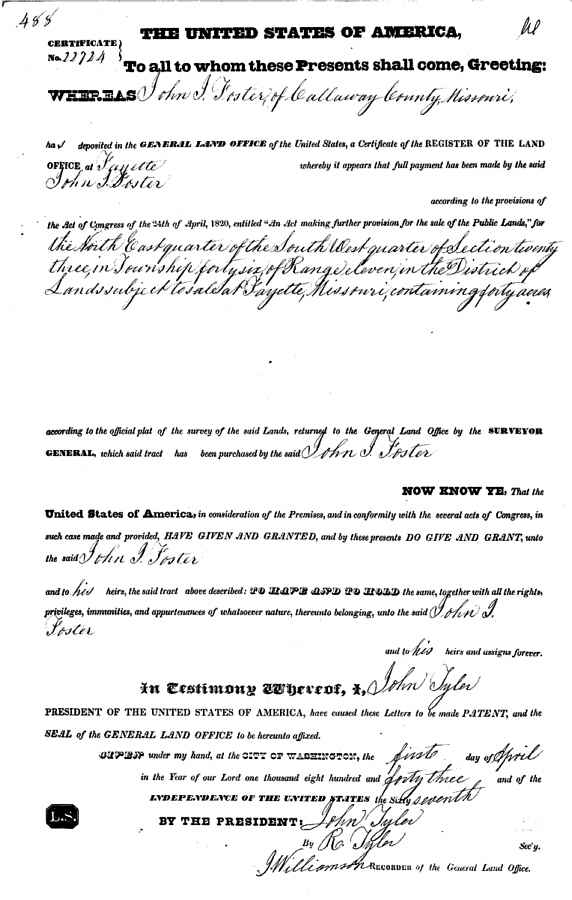 488
THE UNITED STATES OF AMERICA,
CERTIFICATE
No. 22724
To all to whom these Presents shall come, Greeting:
WHEREAS John J. Foster, of Callaway County, Missouri,
has deposited in the GENERAL LAND OFFICE of the United States, a Certificate of the REGISTER OF THE LAND
OFFICE at Fayette whereby it appears that full payment has been made by the said
John J. Foster
according to the provisions of
the Act of Congress of the 24th of April, 1820, entitled "An Act making further provision for the sale of the Public Lands," for
the North East quarter of the South West quarter of Section twenty
three, in Township forty six, of Range eleven, in the District of
Lands subject to sale at Fayette, Missouri, containing forty acres
according to the official plat of the survey of the said Lands, returned to the General Land Office by the SURVEYOR
GENERAL, which said tract has been purchased by the said John J. Foster
NOW KNOW YE, That the
United States of America, in consideration of the Premises, and in conformity with the several acts of Congress, in
such case made and provided, HAVE GIVEN AND GRANTED, and by these presents DO GIVE AND GRANT, unto
the said John J. Foster
and to his heirs, the said tract above described: TO HAVE AND TO HOLD the same, together with all the rights,
privileges, immunities, and appurtenances of whatsoever nature, thereunto belonging, unto the said John J.
Foster
and to his heirs and assigns forever.
In Testimony Whereof, I, John Tyler
PRESIDENT OF THE UNITED STATES OF AMERICA, have caused these Letters to be made PATENT, and the
SEAL of the GENERAL LAND OFFICE to be hereunto affixed.
GIVEN under my hand, at the CITY OF WASHINGTON, the first day of April
in the Year of our Lord one thousand eight hundred and forty three and of the
INDEPENDENCE OF THE UNITED STATES the Sixty seventh
L.S. BY THE PRESIDENT: John Tyler
By R. Tyler Sec'y.
J. Williamson RECORDER of the General Land Office.